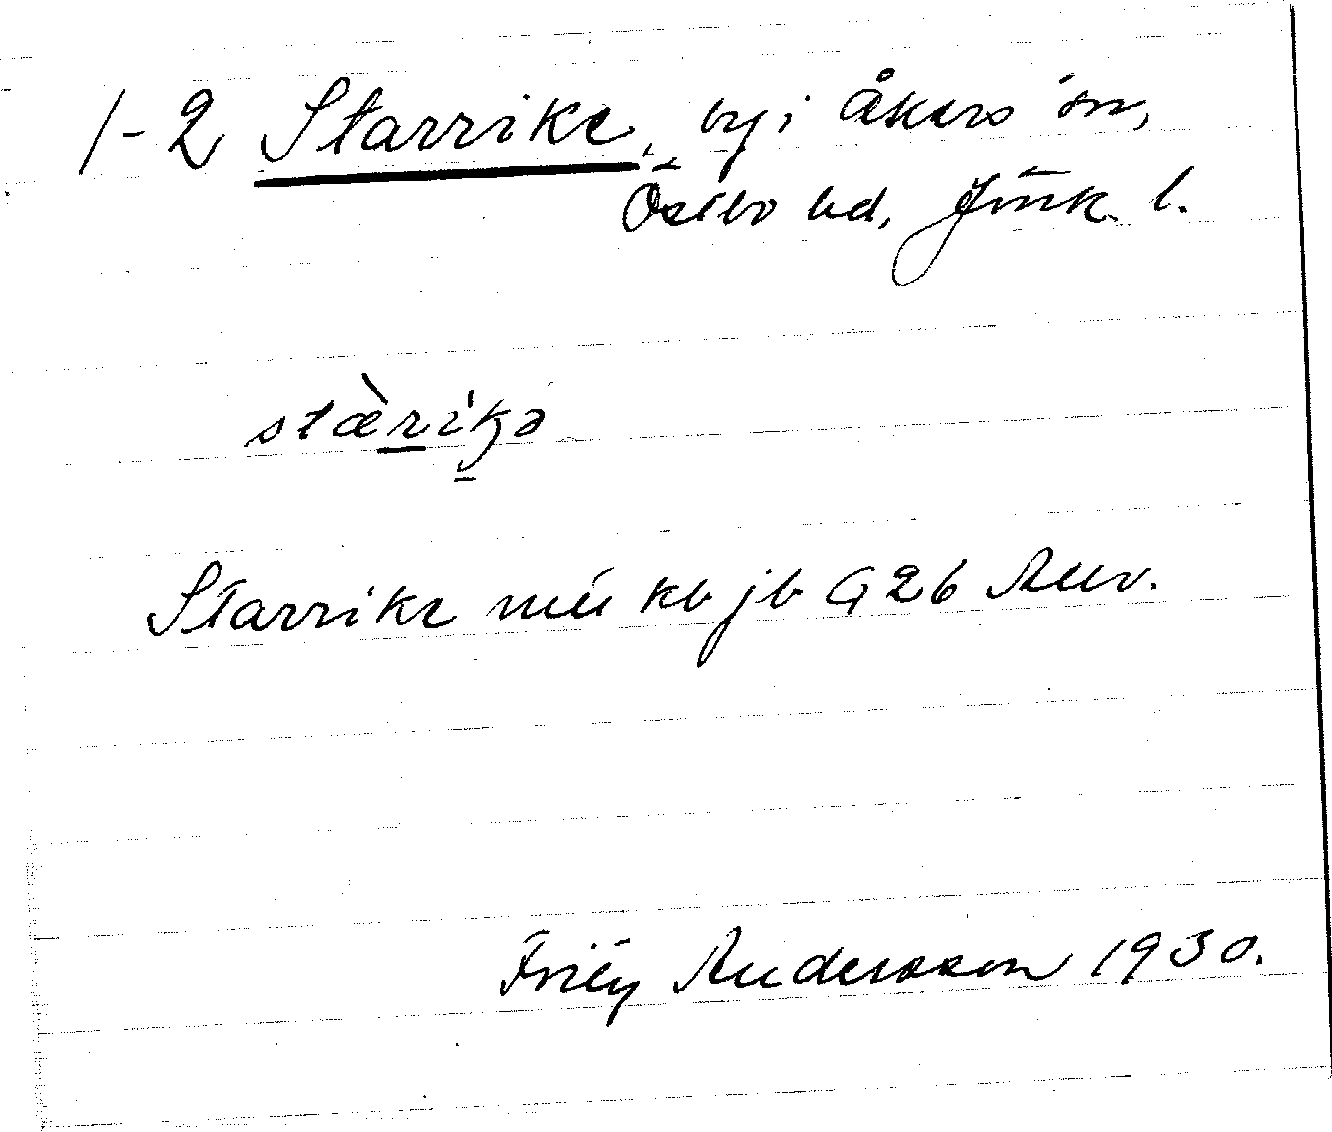 1-2 Starrike, by i Åkers sn,
Östbo hd, Jönk. l.
stæ̀rikə
Starrike mû kb jb G 26 Anv.
Frity Andersson 1930.